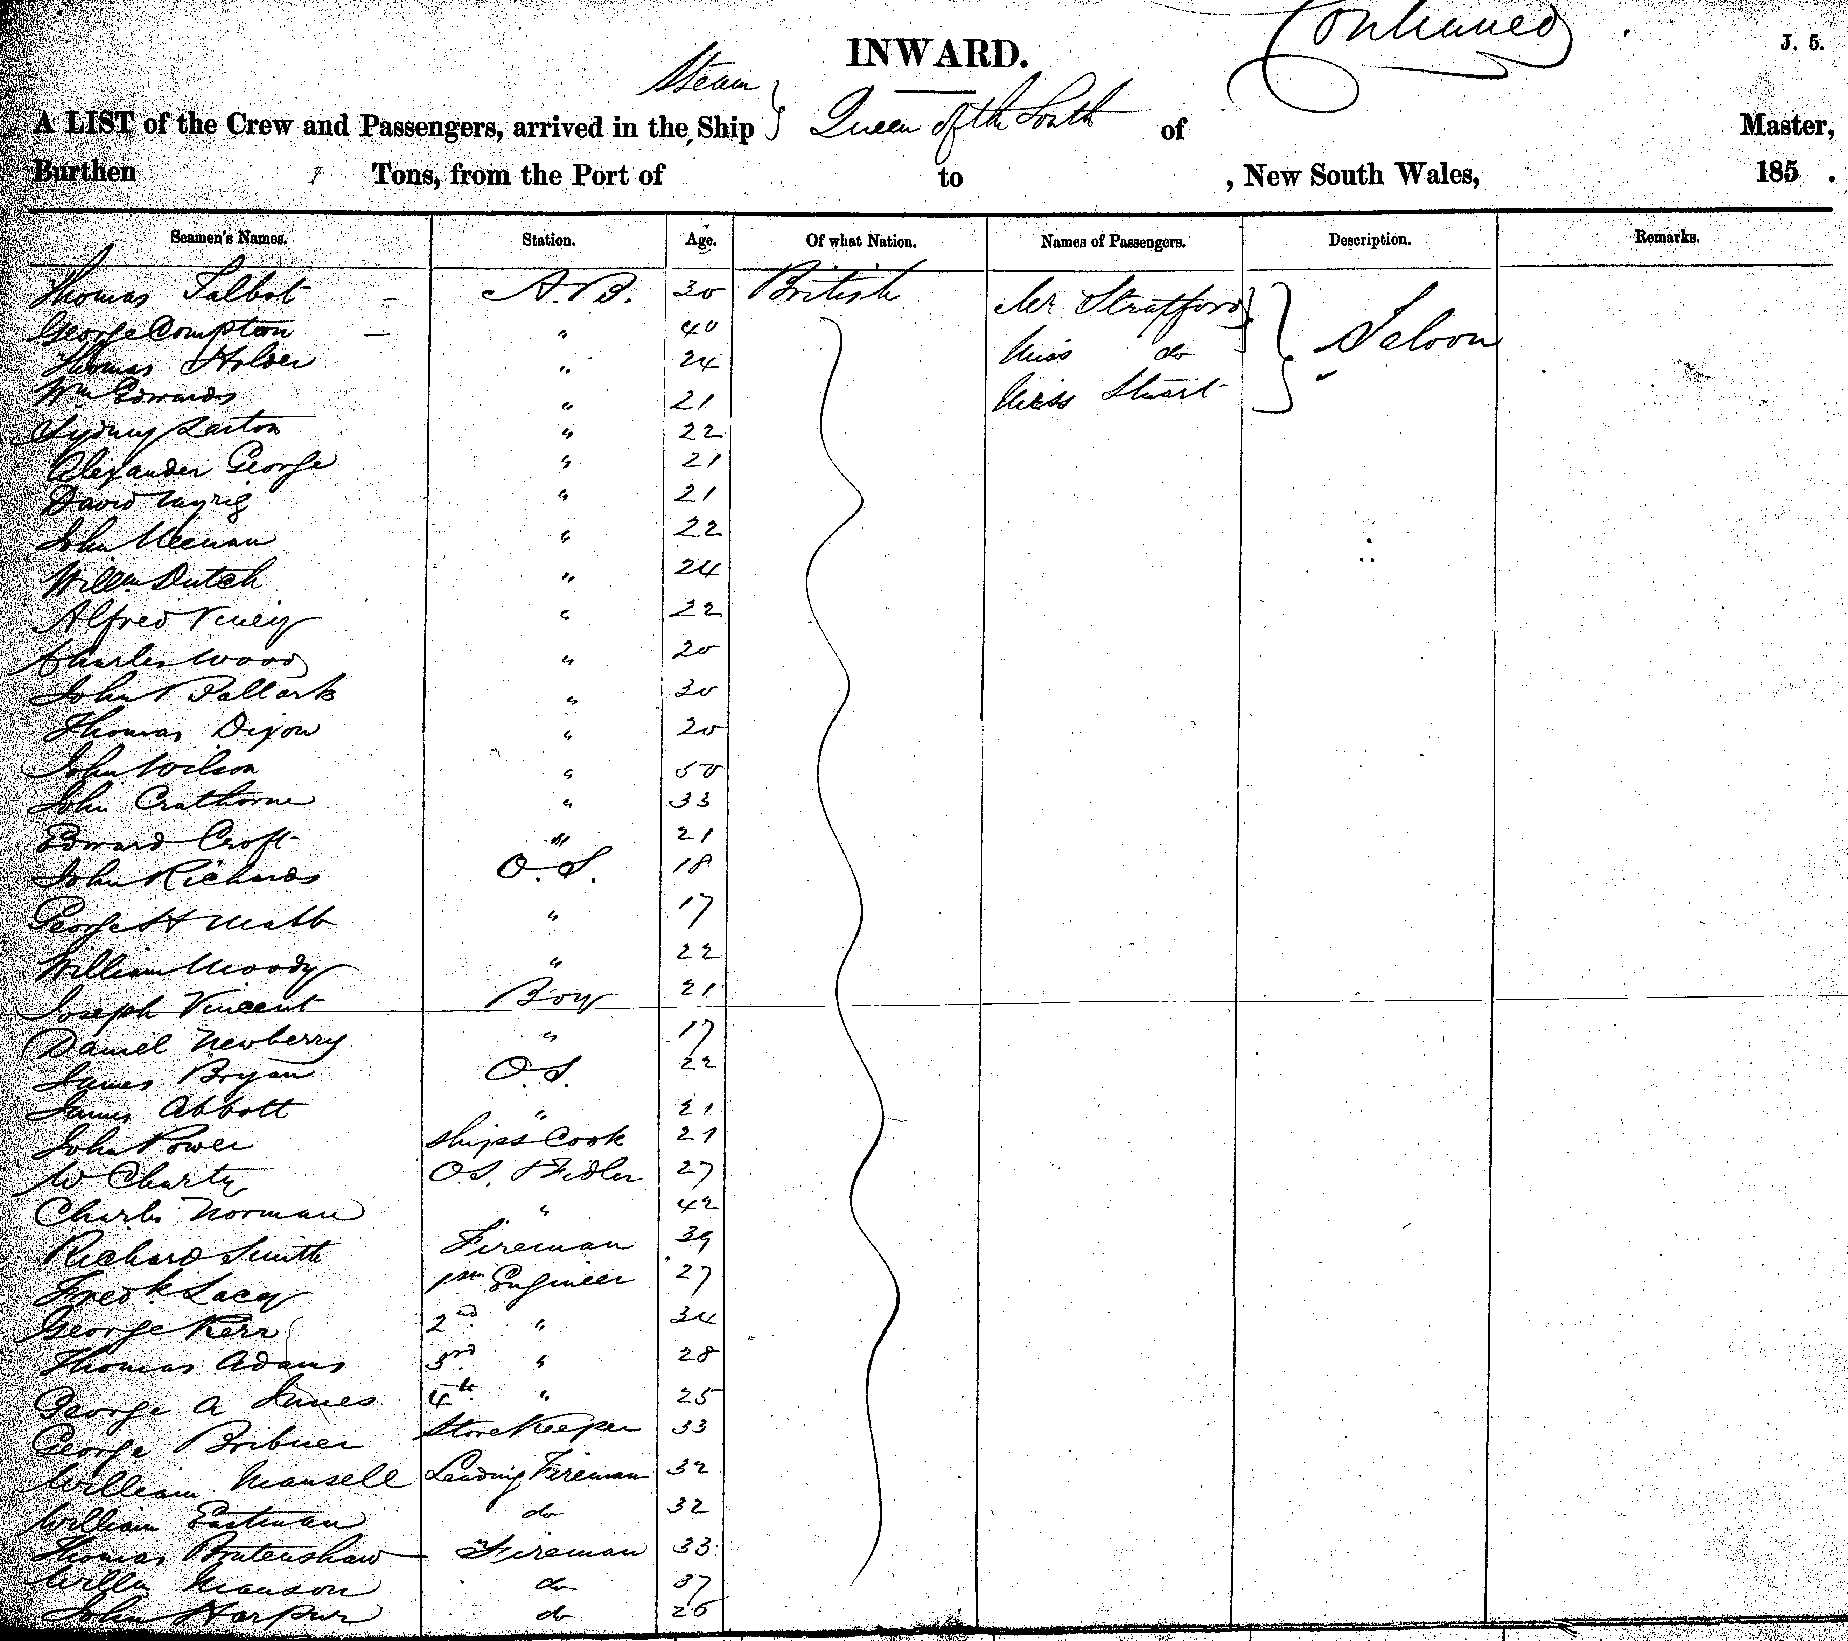 Continued
INWARD.
J. 5.
Steam
A LIST of the Crew and Passengers, arrived in the Ship } Queen of the South of Master,
Burthen Tons, from the Port of to , New South Wales, 185 .
Seamen's Names. Station. Age. Of what Nation. Names of Passengers. Description. Remarks.
Thomas Talbot - A.B. 30 British Mr Strafford } Saloon
George Compton - " 40
Thomas Holder " 24 Miss do
Wm Edwards " 21 Miss Stuart "
Sydney Laxton " 22
Alexander George " 21
David " 21
John Keenan " 22
Willm Dutch " 24
Alfred Viney " 22
Charles Wood " 20
John Pallark " 30
Thomas Dixon " 20
John Wilson " 50
John Crathorne " 33
Edward Croft " 21
John Richards O.S. 18
George H Mabb " 17
William Moody " 22
Joseph Vincent Boy 21
Daniel Newberry " 17
James Bryan O.S. 22
James Abbott " 21
John Power Ships Cook 21
W Charty O.S. & Fidler 27
Charles Norman " 42
Richard Smith Fireman 39
Fredk Lacey Engineer 27
George Kerr 2nd " 34
Thomas Adams 3rd " 28
George A James 4th " 25
George Storekeeper 33
William Mansell Leading Fireman 32
William Eastman do 32
Thomas Bratenshaw Fireman 33
Willm Manson do 37
John Harpur do 26